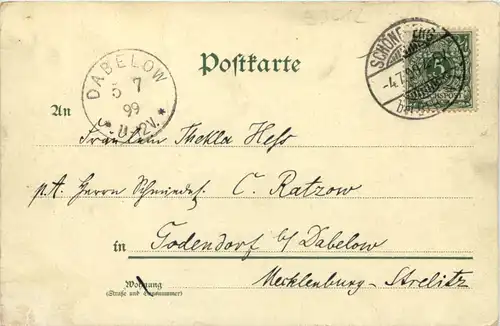 Postkarte
DABELOW
5 7
99
11-12V.
SCHÖNEBERG
-4.7.
5
An
Fräulein Thekla Hess
p.A. Herrn Schmiedes. C. Ratzow
in
Todendorf b/ Dabelow
Mecklenburg-Strelitz
Wohnung
(Straße und Hausnummer)